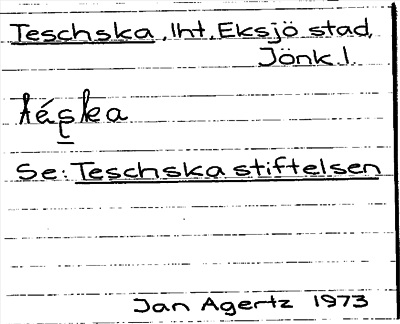 Teschska, lht, Eksjö stad,
Jönk l.
Se: Teschska stiftelsen
Jan Agertz 1973